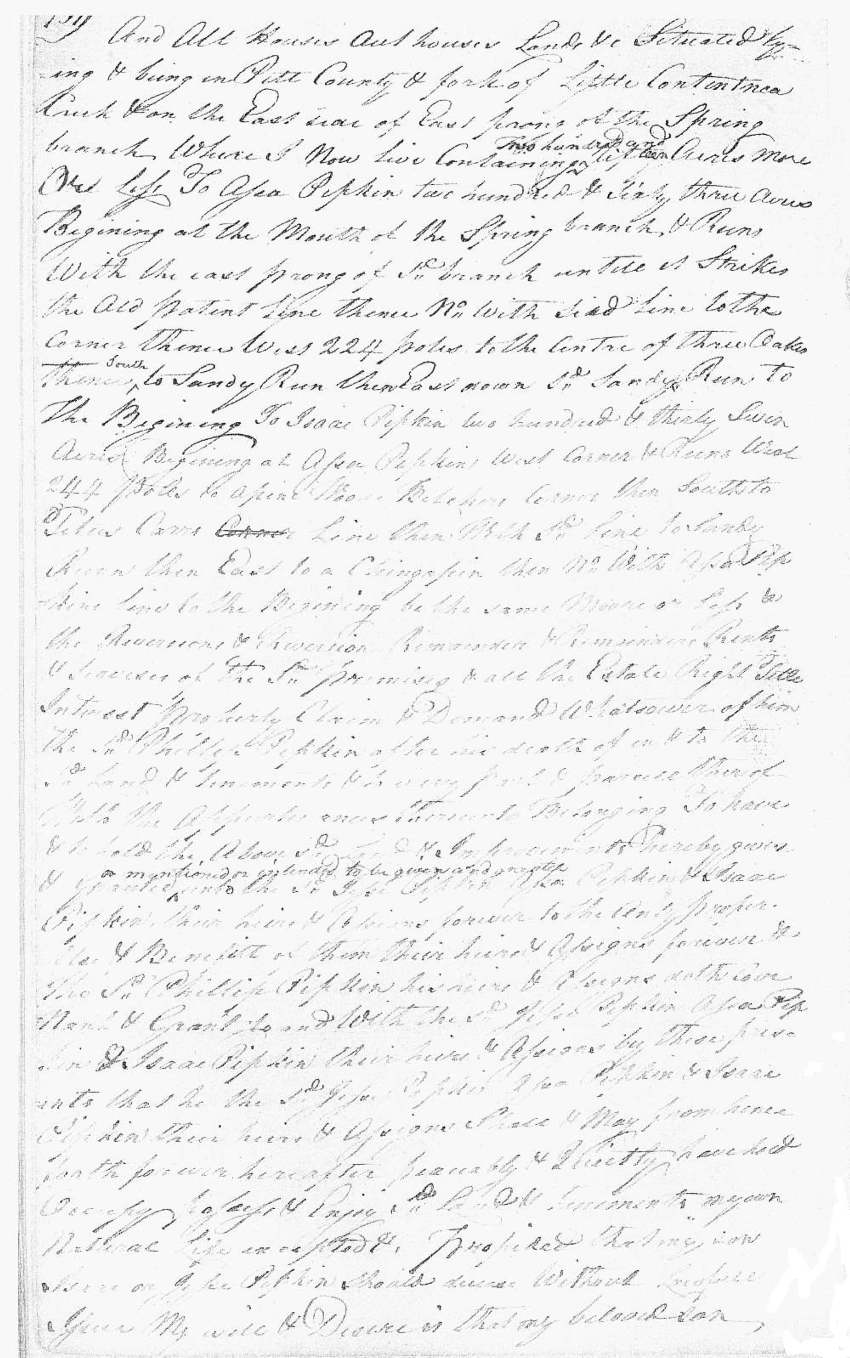 159
And All Houses Out houses Lands &c Situated ly-
ing & being in Pitt County & fork of Little Contentnea
Creek & on the East side of East prong of the Spring
branch Where I Now live Containing Two hundred and Acres more
Ore less To Asa Pipkin two hundred & Sixty three Acres
Begining at the Mouth of the Spring branch & Runs
With the east prong of Sd. branch untill it Strikes
the Old patent Line thence No. With siad Line to the
Corner thence West 224 poles to the Centre of three Oakes
thence South to Sandy Run then East down Sd. Sandy Run to
the Begining To Isaac Pipkin two hundred & thirty Seven
Acres Begining at Asa Pipkins West Corner & Runs West
244 polls to a pine Corner then South to
Titus Carrs Corner Line then With Sd. Line to Sandy
Run then East to a Chinqapin then No. With Asa Pip
kins line to the Begining be the same Moore or Less &
the Reversions & Reversion Remainder & Remainders Rents
& Isavses of the Sd. premises & all the Estate Right Title
Intrest property Claim & Demand Whatsover of him
the Sd. Phillip Pipkin after his death of in & to the
Sd. Land & tenements & every part & parcell thereof
With the thereunto Belonging To have
& to hold the Above Sd. Land & Improvements hereby given
or mentioned or intended to be given and granted
& granted unto the Sd. Jesse Pipkin Asa Pipkin & Isaac
Pipkin their heirs & Assigns forever to the Only proper
Use & Benefitt of them their heirs & Assigns forever &
the Sd. Phillip Pipkin his heirs & Assigns doth Cove
Nant & Grant to and With the Sd. Jesse Pipkin Asa Pip
kin & Isaac Pipkin their heirs & Assigns by these pres-
ents that he the Sd. Jesse Pipkin Asa Pipkin & Isaac
Pipkin their heirs & Assigns Shall & May from hence
forth forever hereafter peaceably & Quietly have hold
Occupy possess & Enjoy Sd. Land & tenements my own
Natural Life excepted & Propided that my son
Isaac or Jesse Pipkin Should decese Without
Issue My will & Desire is that my beloved son